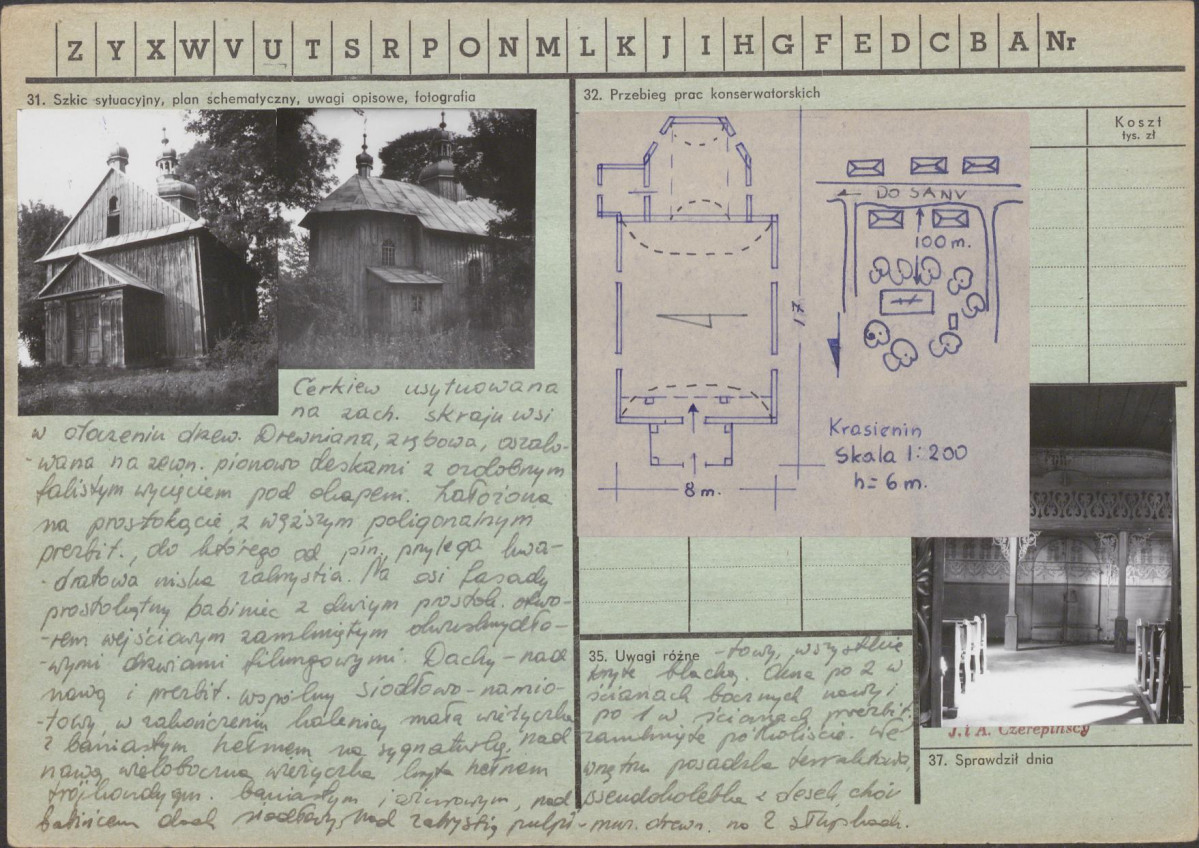 Z Y X W V U T S R P O N M L K J I H G F E D C B A Nr
31. Szkic sytuacyjny, plan schematyczny, uwagi opisowe, fotografia
Cerkiew usytuowana
na zach. skraju wsi
w otoczeniu drzew. Drewniana, zrębowa, oszalo-
-wana na zewn. pionowo deskami z ozdobnym
falistym wycięciem pod okapem. Założona
na prostokącie z węższym poligonalnym
prezbit., do którego od płn. przylega kwa-
-dratowa niska zakrystia. Na osi fasady
prostokątny babiniec z dużym prostok. otwo-
-rem wejściowym zamkniętym dwuskrzydło-
-wymi drzwiami filungowymi. Dachy - nad
nawą i prezbit. wspólny siodłowo-namio-
-towy, w zakończeniu kalenicy mała wieżyczka
z baniastym hełmem na sygnaturkę, nad
nawą wieloboczna wieżyczka kryta hełmem
trójkondygn. baniastym i ażurowym, nad
babińcem dach siodłowy, nad zakrystią pulpi-
32. Przebieg prac konserwatorskich
Koszt
tys. zł
DO SANU
100 m.
17
8 m.
Krasienin
Skala 1:200
h = 6 m.
35. Uwagi różne
-towy, wszystkie
kryte blachą. Okna po 2 w
ścianach bocznych nawy i
po 1 w ścianach prezbit.
zamknięte półkoliście. We
wnętrzu posadzka terrakotowa,
pseudokolebka z desek, chór
muz. drewn. na 2 słupkach.
J. i A. Czerepińscy
37. Sprawdził dnia